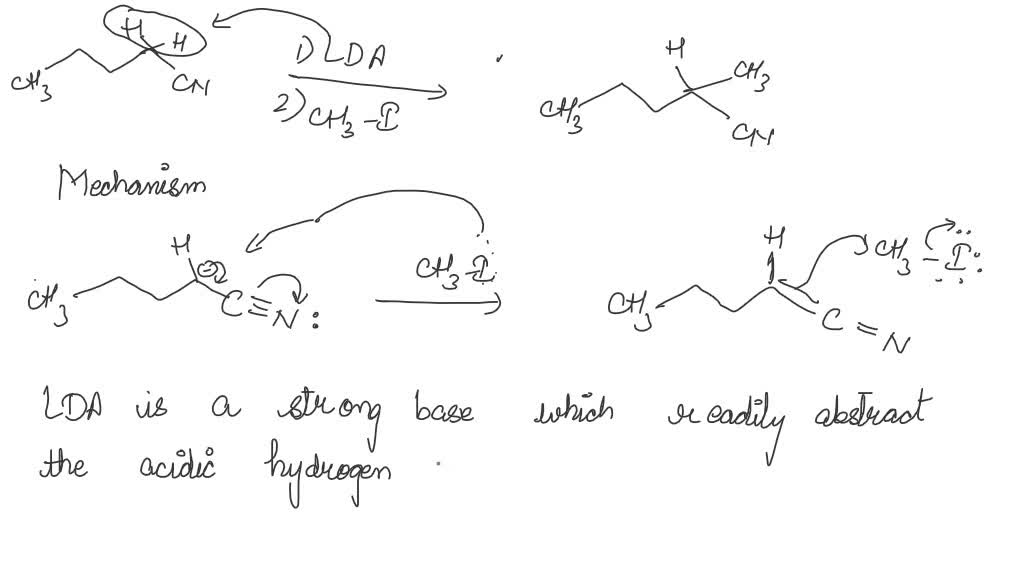 H
H
CH3
CN
1) LDA
2) CH3-I
H
CH3
CH3
CN
Mechanism
H
CH3
⊖
C≡N:
CH3-I
H
CH3
C=N
CH3-I
LDA is a strong base which readily abstract
the acidic hydrogen .